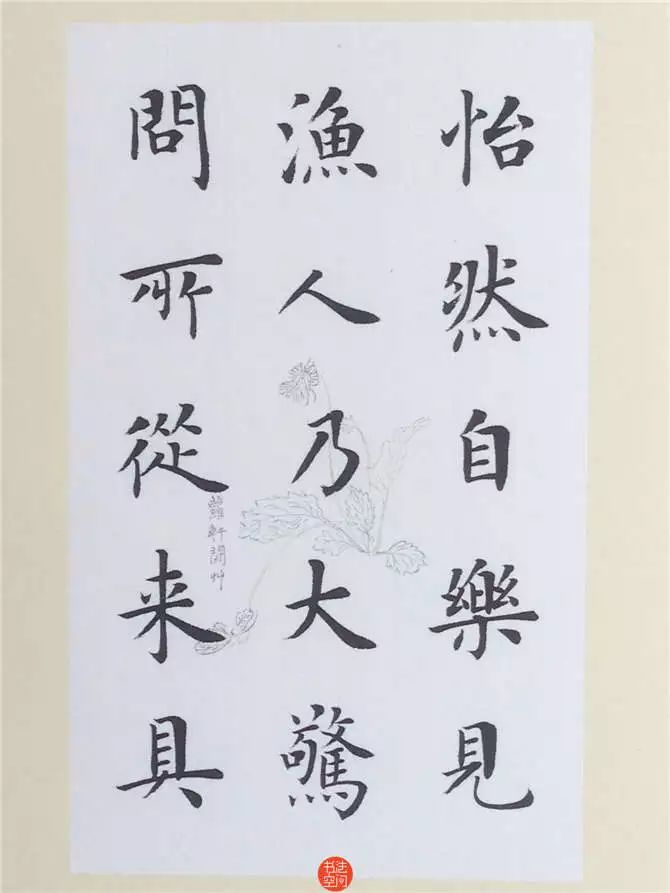 怡然自樂見
漁人乃大驚
問所從来具
蘿軒閒艸
书法空间